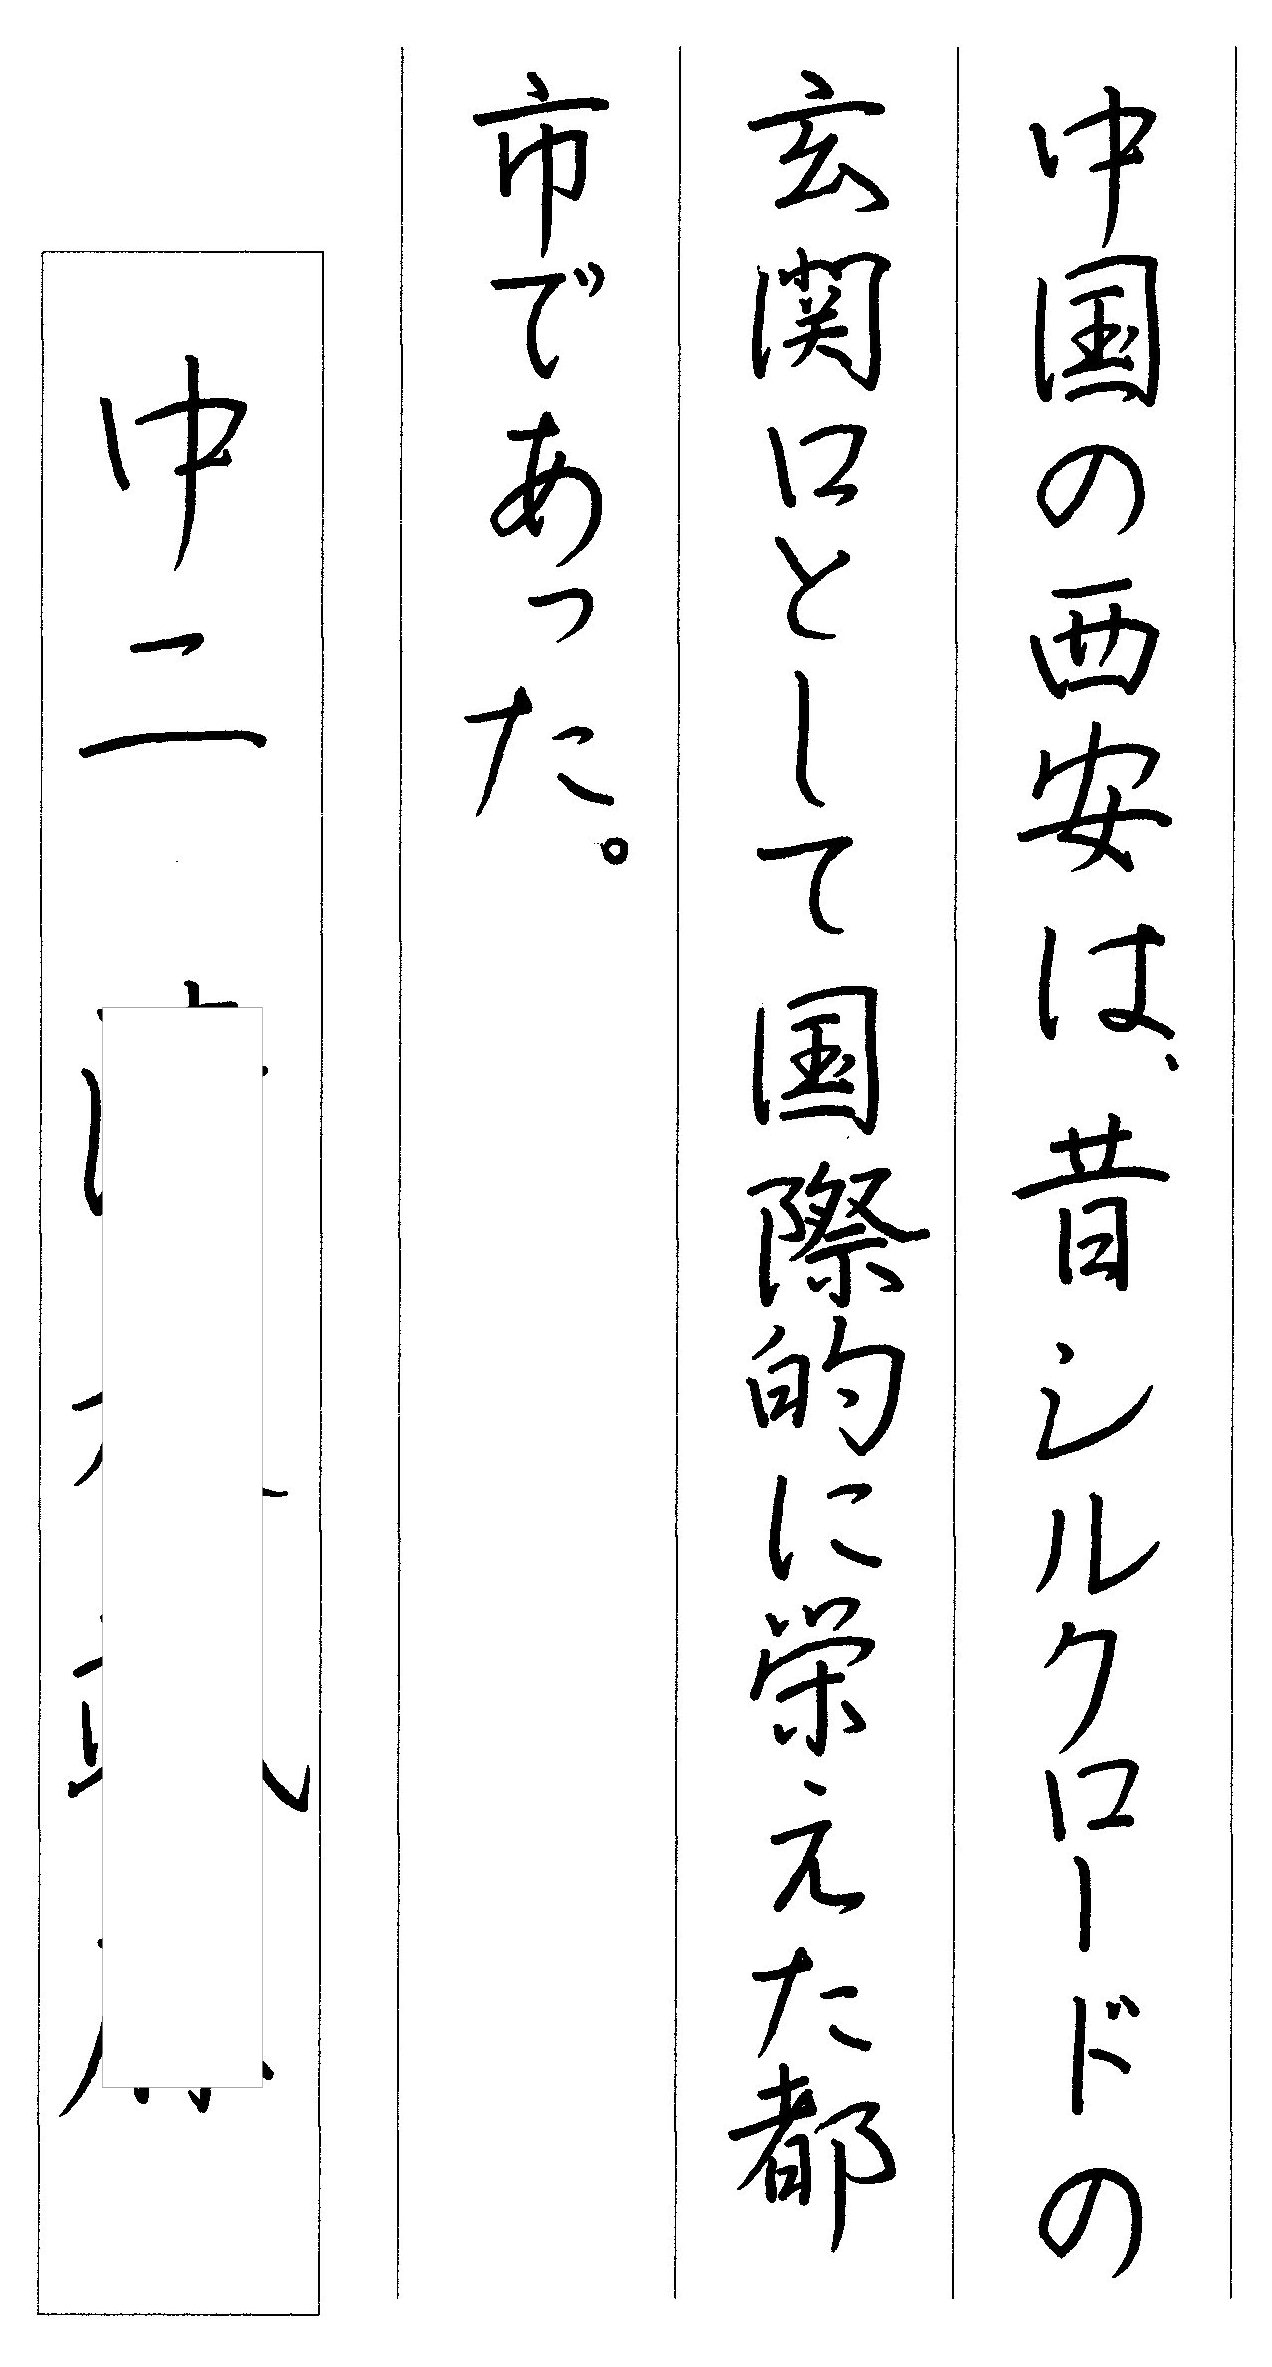 中国の西安は、昔シルクロードの
玄関口として国際的に栄えた都
市であった。
中二